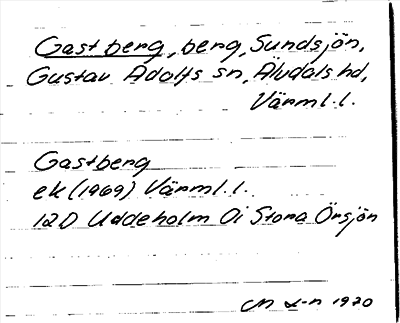 Gastberg, berg, Sundsjön,
Gustav Adolfs sn, Älvdals hd,
Värml.l.
Gastberg
ek (1969) Värml.l.
12D Uddeholm Oi Stora Örsjön
1970